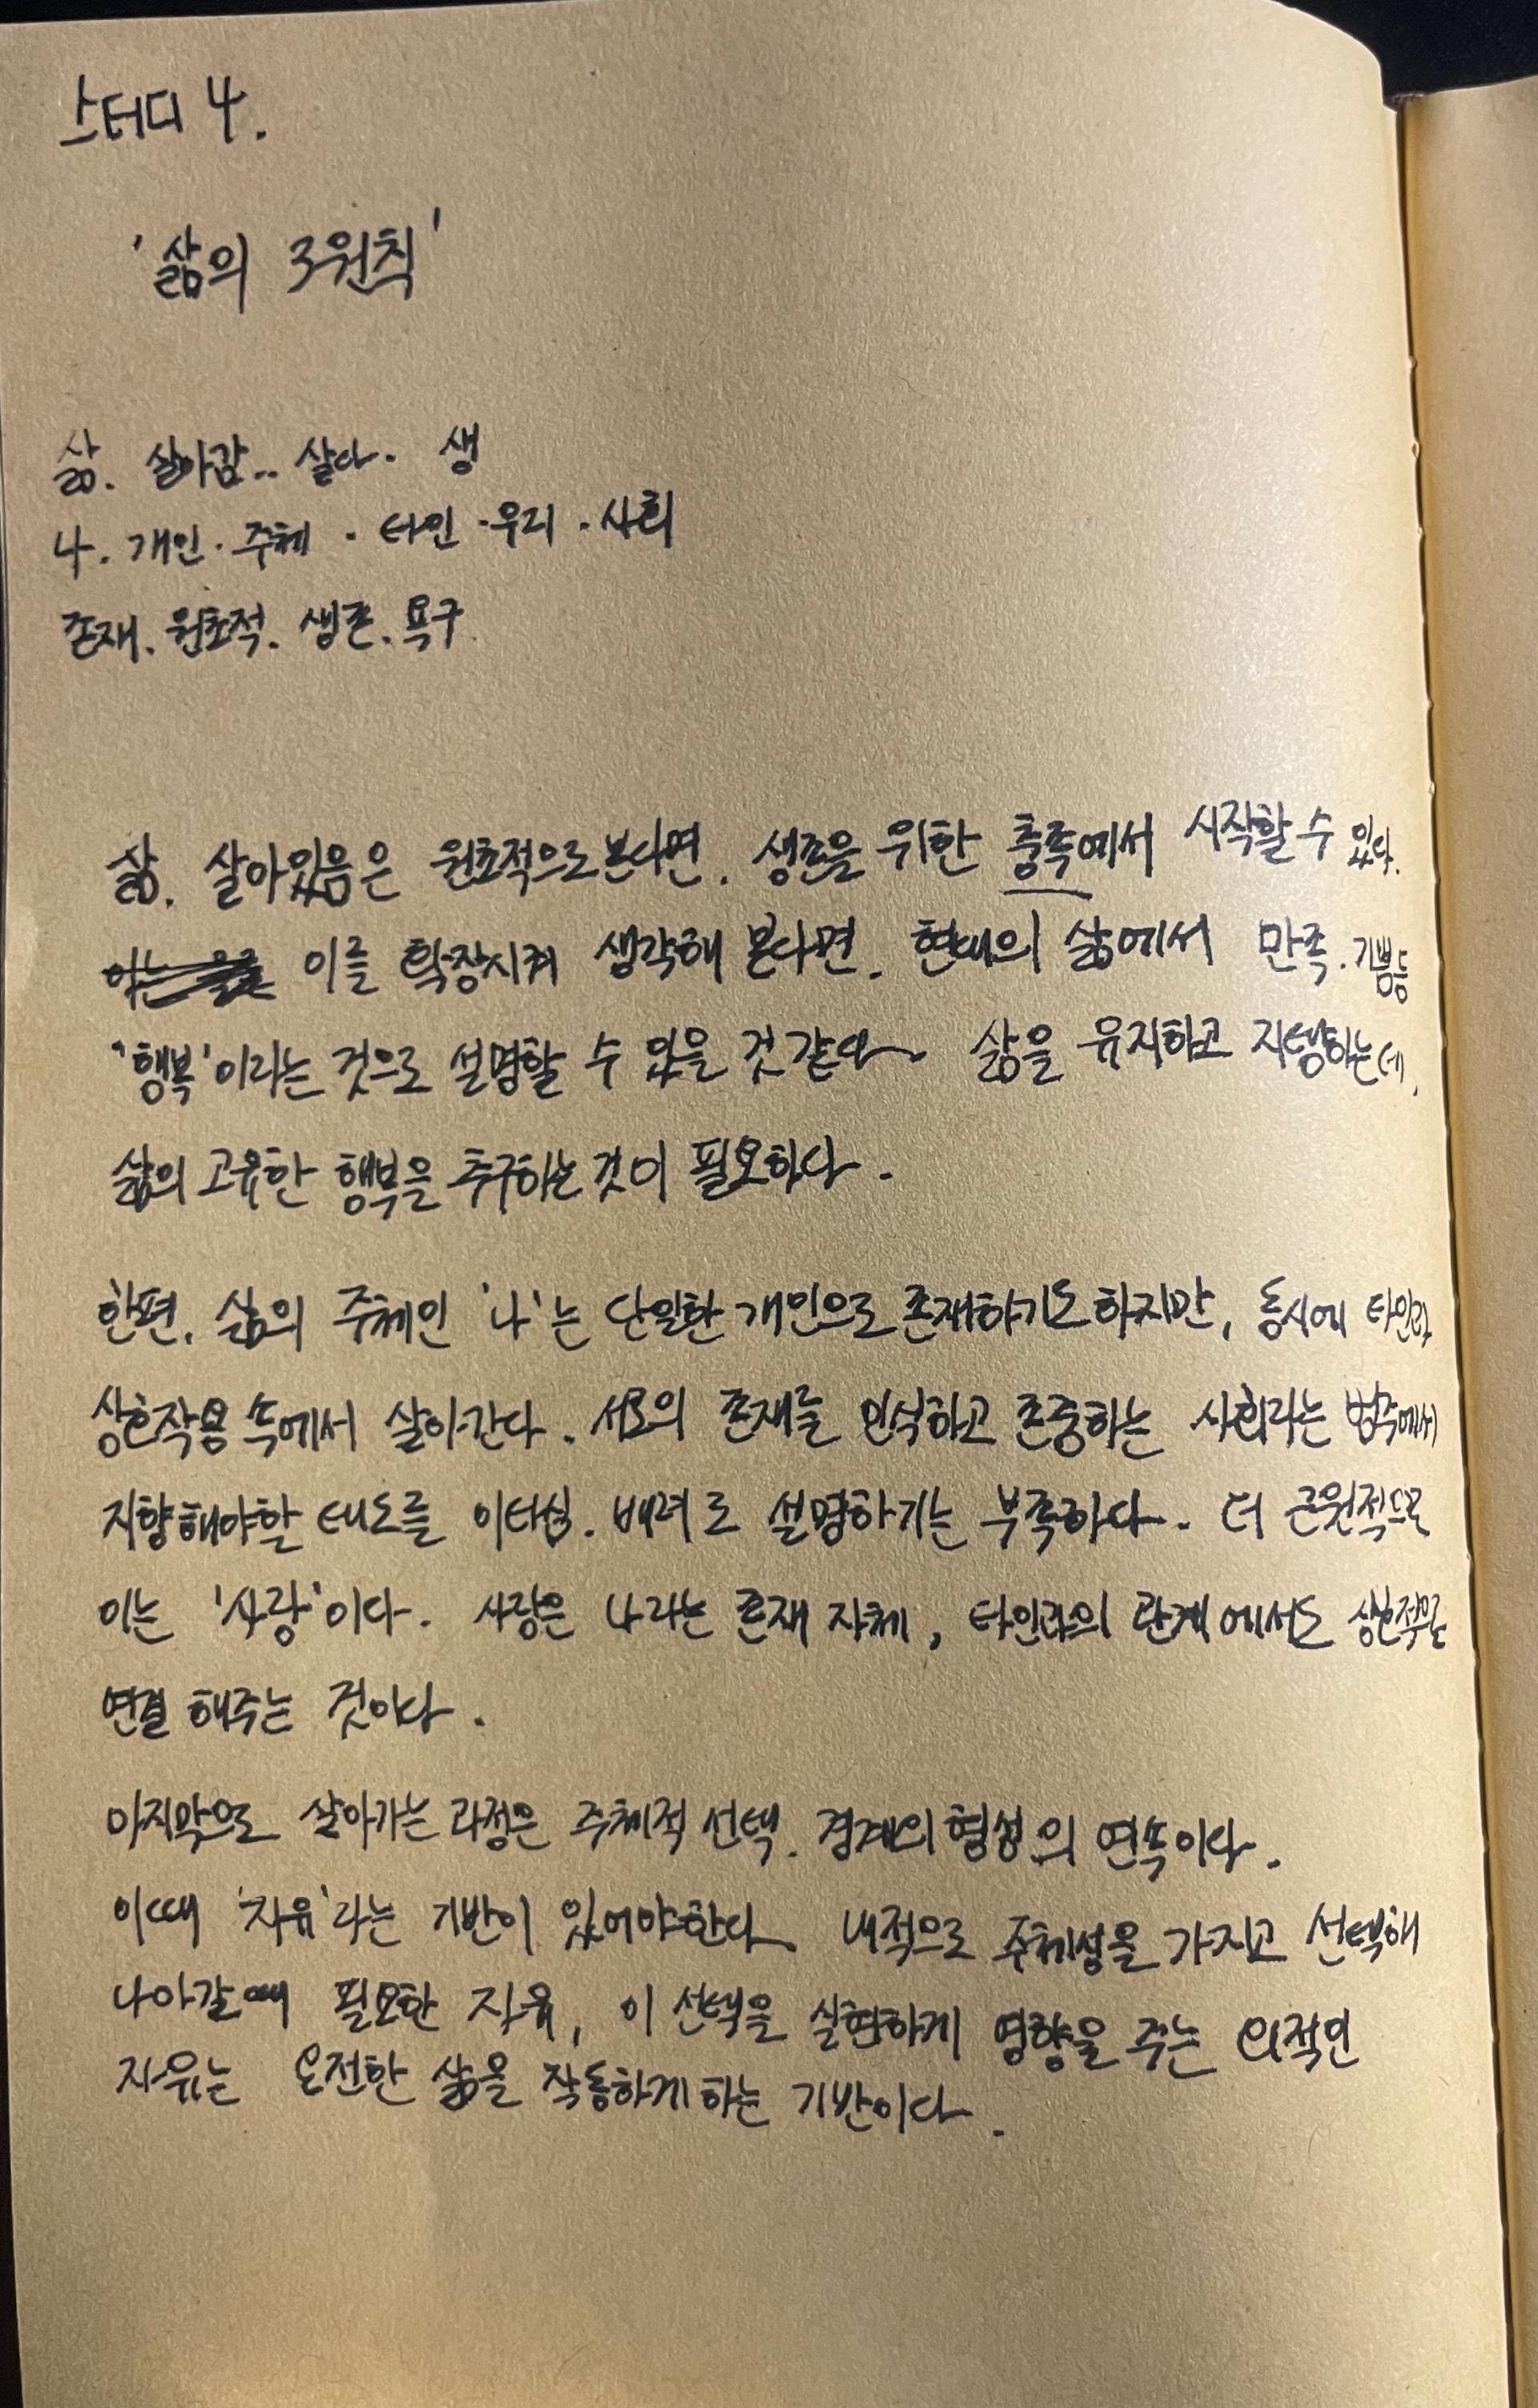 스터디 4.
'삶의 3원칙'
삶. 살아감.. 살다. 생
나. 개인. 주체. 타인. 우리. 사회
존재. 원초적. 생존. 욕구
삶. 살아있음은 원초적으로 본다면. 생존을 위한 충족에서 시작할 수 있다.
이를 확장시켜 생각해 본다면. 현대의 삶에서 만족. 기쁨등
'행복'이라는 것으로 설명할 수 있을 것 같다. 삶을 유지하고 지탱하는데,
삶의 고유한 행복을 추구하는 것이 필요하다.
한편. 삶의 주체인 '나'는 단일한 개인으로 존재하기도 하지만, 동시에 타인과
상호작용 속에서 살아간다. 서로의 존재를 인식하고 존중하는 사회라는 범주에서
지향해야할 태도를 이타심. 배려로 설명하기는 부족하다. 더 근원적으로
이는 '사랑'이다. 사랑은 나라는 존재 자체, 타인과의 관계에서도 상호적으로
연결해주는 것이다.
마지막으로 살아가는 과정은 주체적 선택. 경계의 형성의 연속이다.
이때 '자유'라는 기반이 있어야한다. 내적으로 주체성을 가지고 선택해
나아갈 때 필요한 자유, 이 선택을 실현하게 영향을 주는 외적인
자유는 온전한 삶을 작동하게 하는 기반이다.